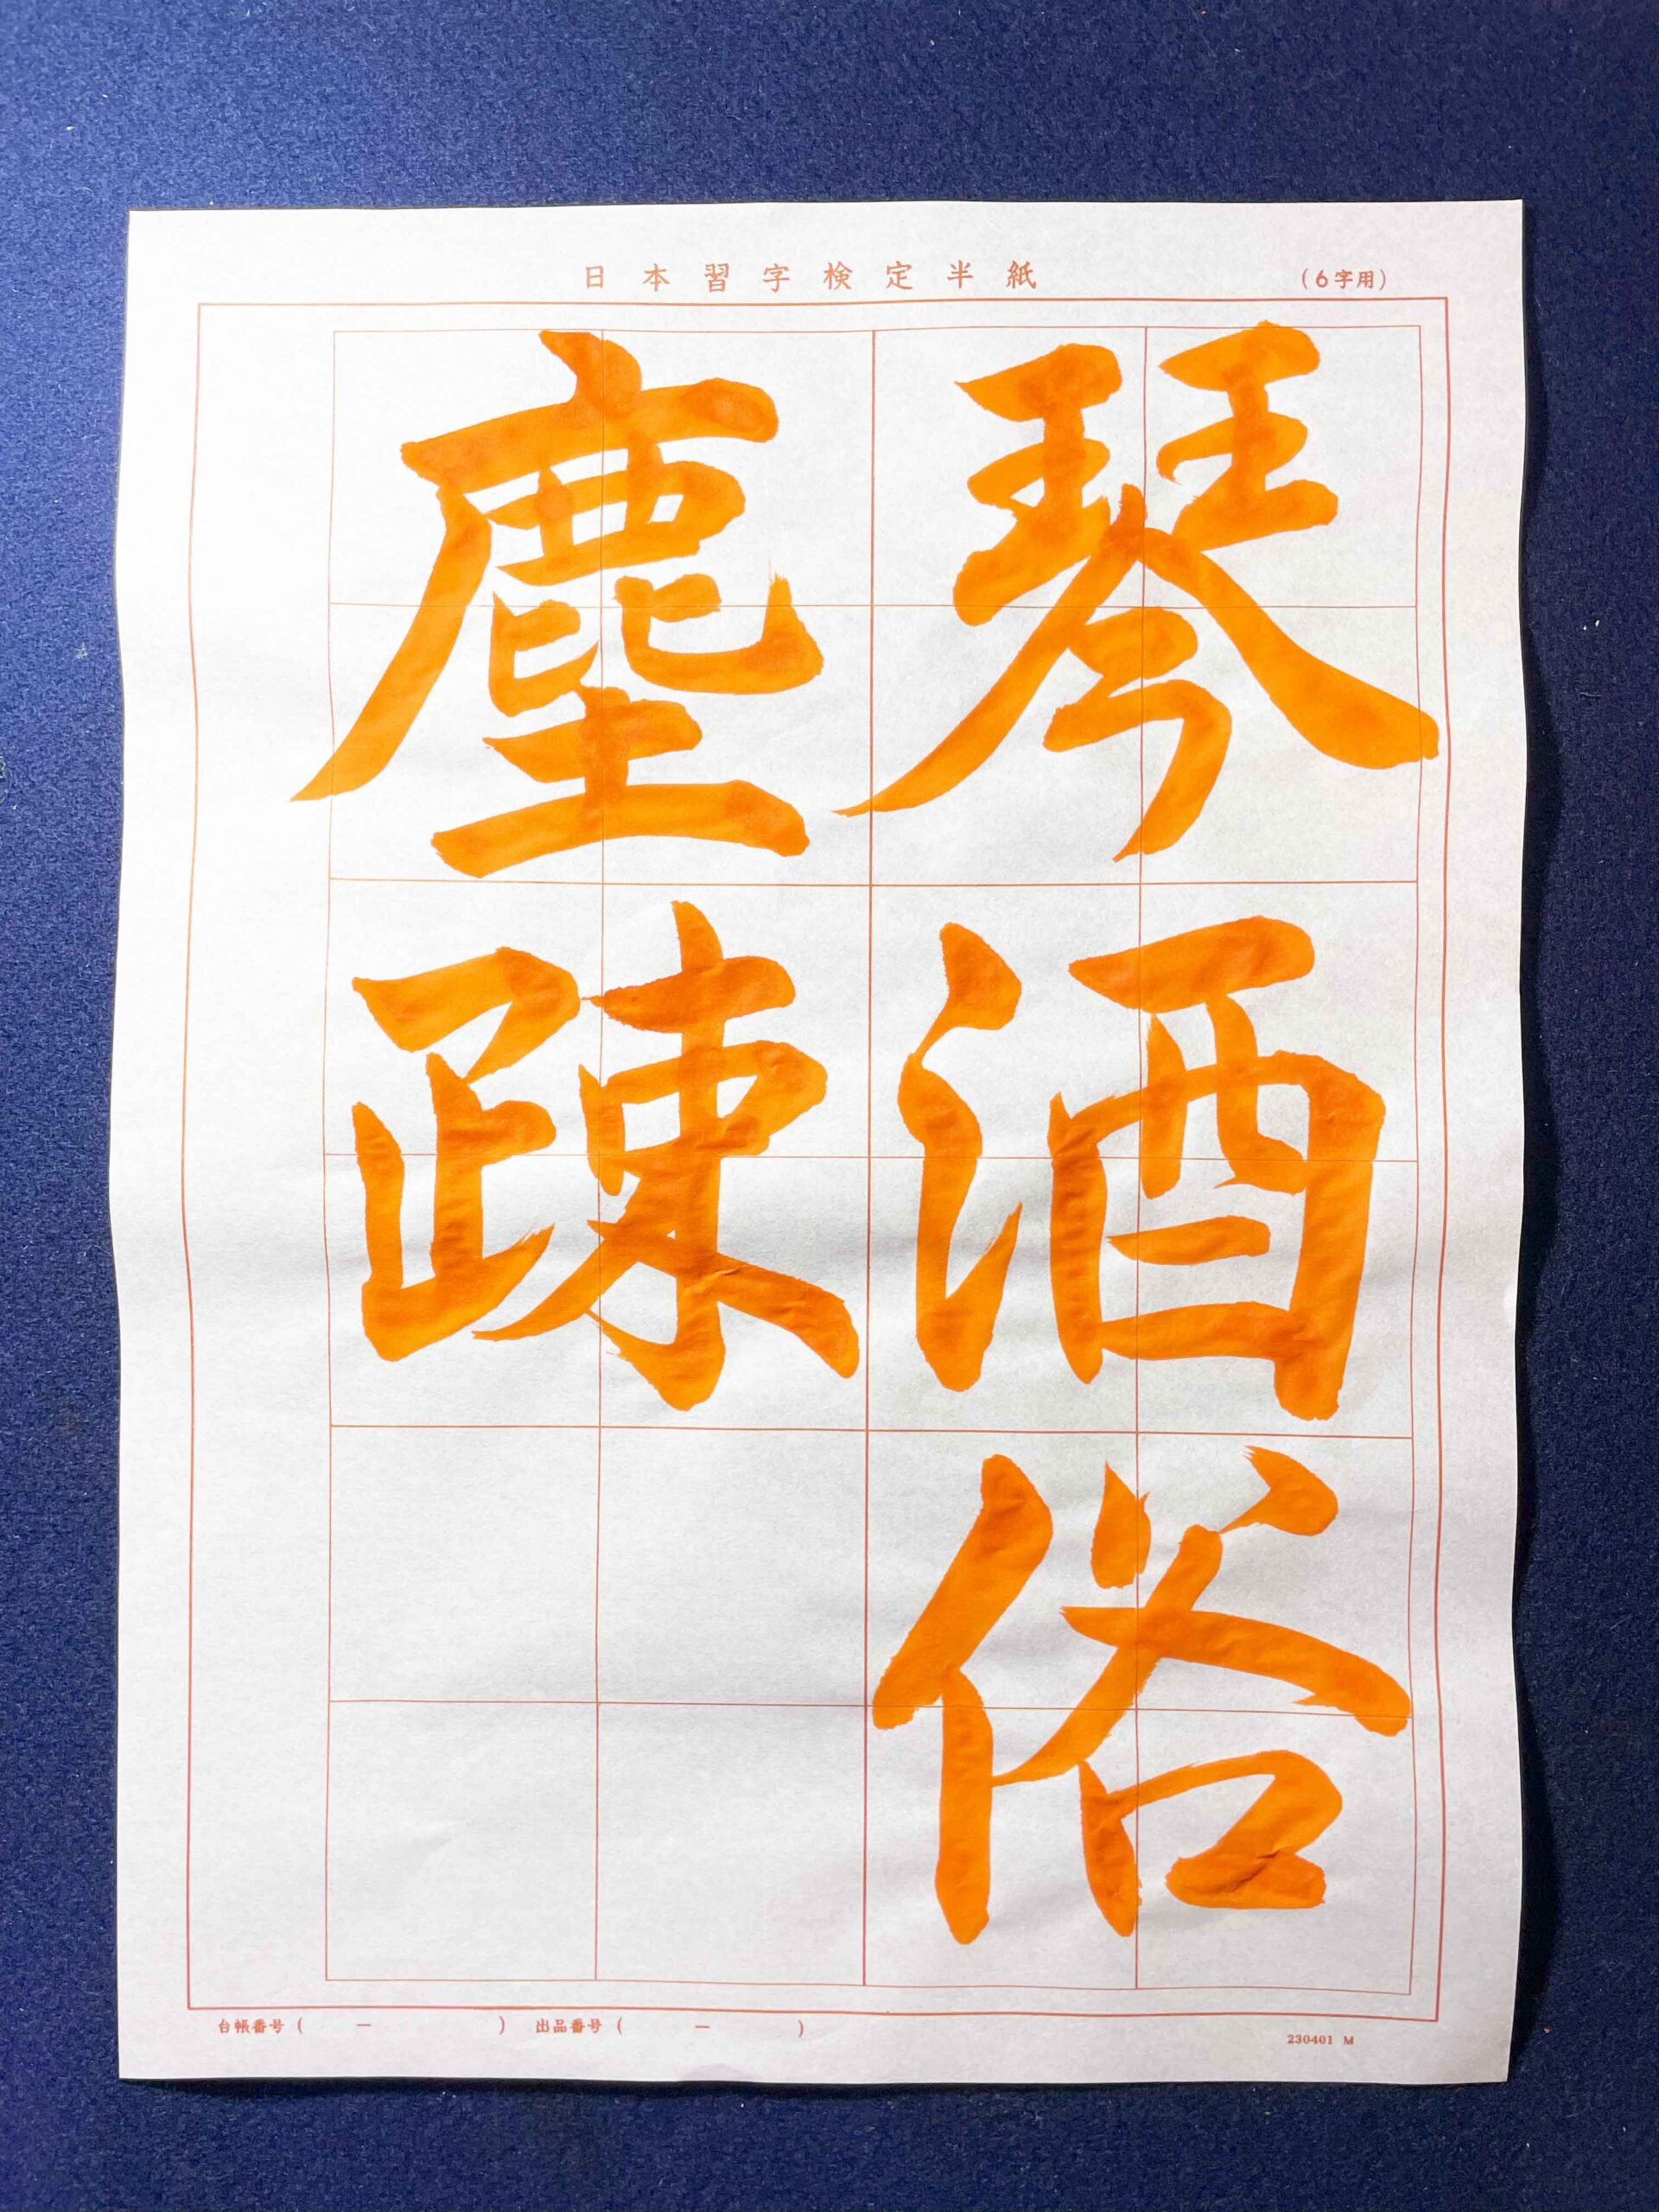 日本習字検定半紙
(6字用)
琴酒俗
塵疎
台帳番号( ー )　出品番号( ー )
230401 M